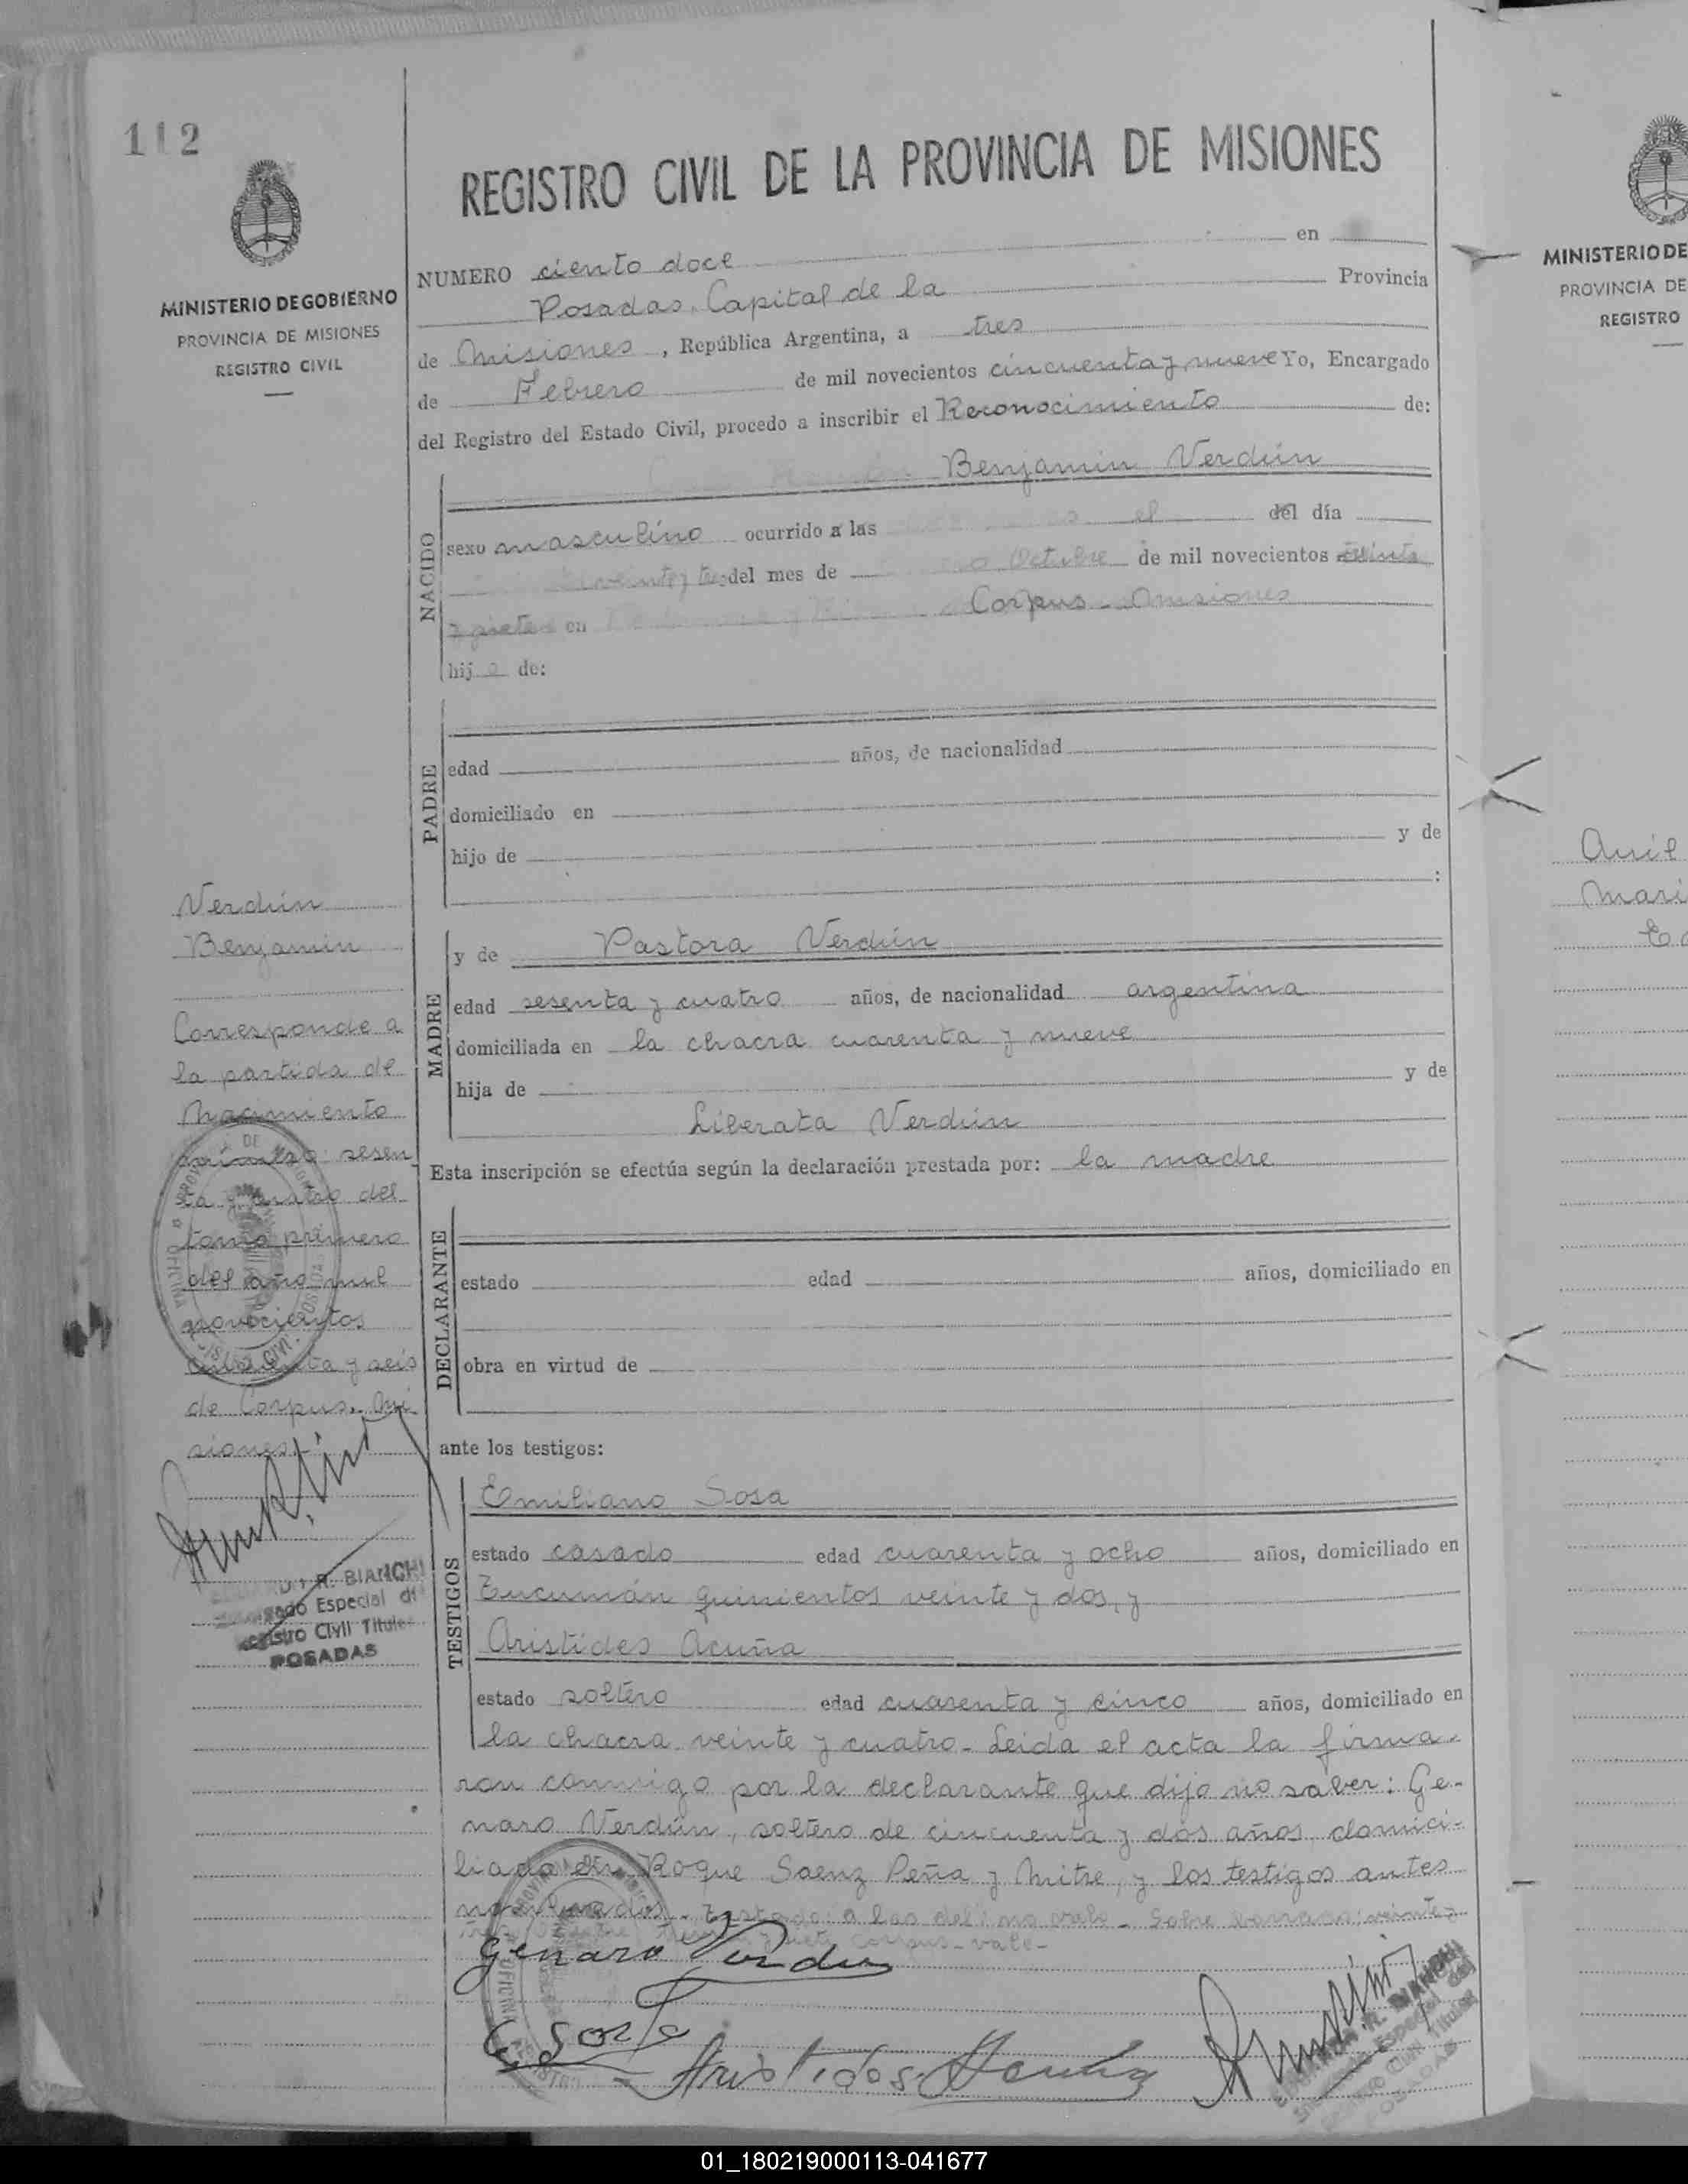 112
REGISTRO CIVIL DE LA PROVINCIA DE MISIONES
MINISTERIO DE GOBIERNO
PROVINCIA DE MISIONES
REGISTRO CIVIL
NUMERO ciento doce en
Posadas, Capital de la Provincia
de Misiones, República Argentina, a tres
de Febrero de mil novecientos cincuenta y nueve Yo, Encargado
del Registro del Estado Civil, procedo a inscribir el Reconocimiento de:
NACIDO
Benjamin Verdún
sexo masculino ocurrido a las el del día
veinte y tres del mes de Octubre de mil novecientos treinta
y siete en Corpus - Misiones
hijo de:
PADRE
edad años, de nacionalidad
domiciliado en
hijo de y de
:
MADRE
y de Pastora Verdún
edad sesenta y cuatro años, de nacionalidad argentina
domiciliada en la chacra cuarenta y nueve
hija de y de
Liberata Verdún
Esta inscripción se efectúa según la declaración prestada por: la madre
DECLARANTE
estado edad años, domiciliado en
obra en virtud de
ante los testigos:
TESTIGOS
Emiliano Sosa
estado casado edad cuarenta y ocho años, domiciliado en
Tucumán quinientos veinte y dos, y
Aristides Acuña
estado soltero edad cuarenta y cinco años, domiciliado en
la chacra veinte y cuatro - Leida el acta la firma-
ron conmigo por la declarante que dijo no saber: Ge-
naro Verdún, soltero de cincuenta y dos años, domici-
liado en Roque Saenz Peña y Mitre, y los testigos antes
nombrados - Testado: a las del: no vale - Sobre borrado: veinte y
siete Corpus - vale -
Genaro Verdun
E Sosa
Aristides Acuña
Verdún
Benjamin
Corresponde a
la partida de
Nacimiento
número: sesen
ta y cuatro del
tomo primero
del año mil
novecientos
cuarenta y seis
de Corpus. Mi
siones.
R. BIANCHI
Encargado Especial del
Registro Civil Titular
POSADAS
R. BIANCHI
Especial del
Registro Civil Titular
POSADAS
MINISTERIO DE
PROVINCIA DE
REGISTRO
Mari
01_180219000113-041677